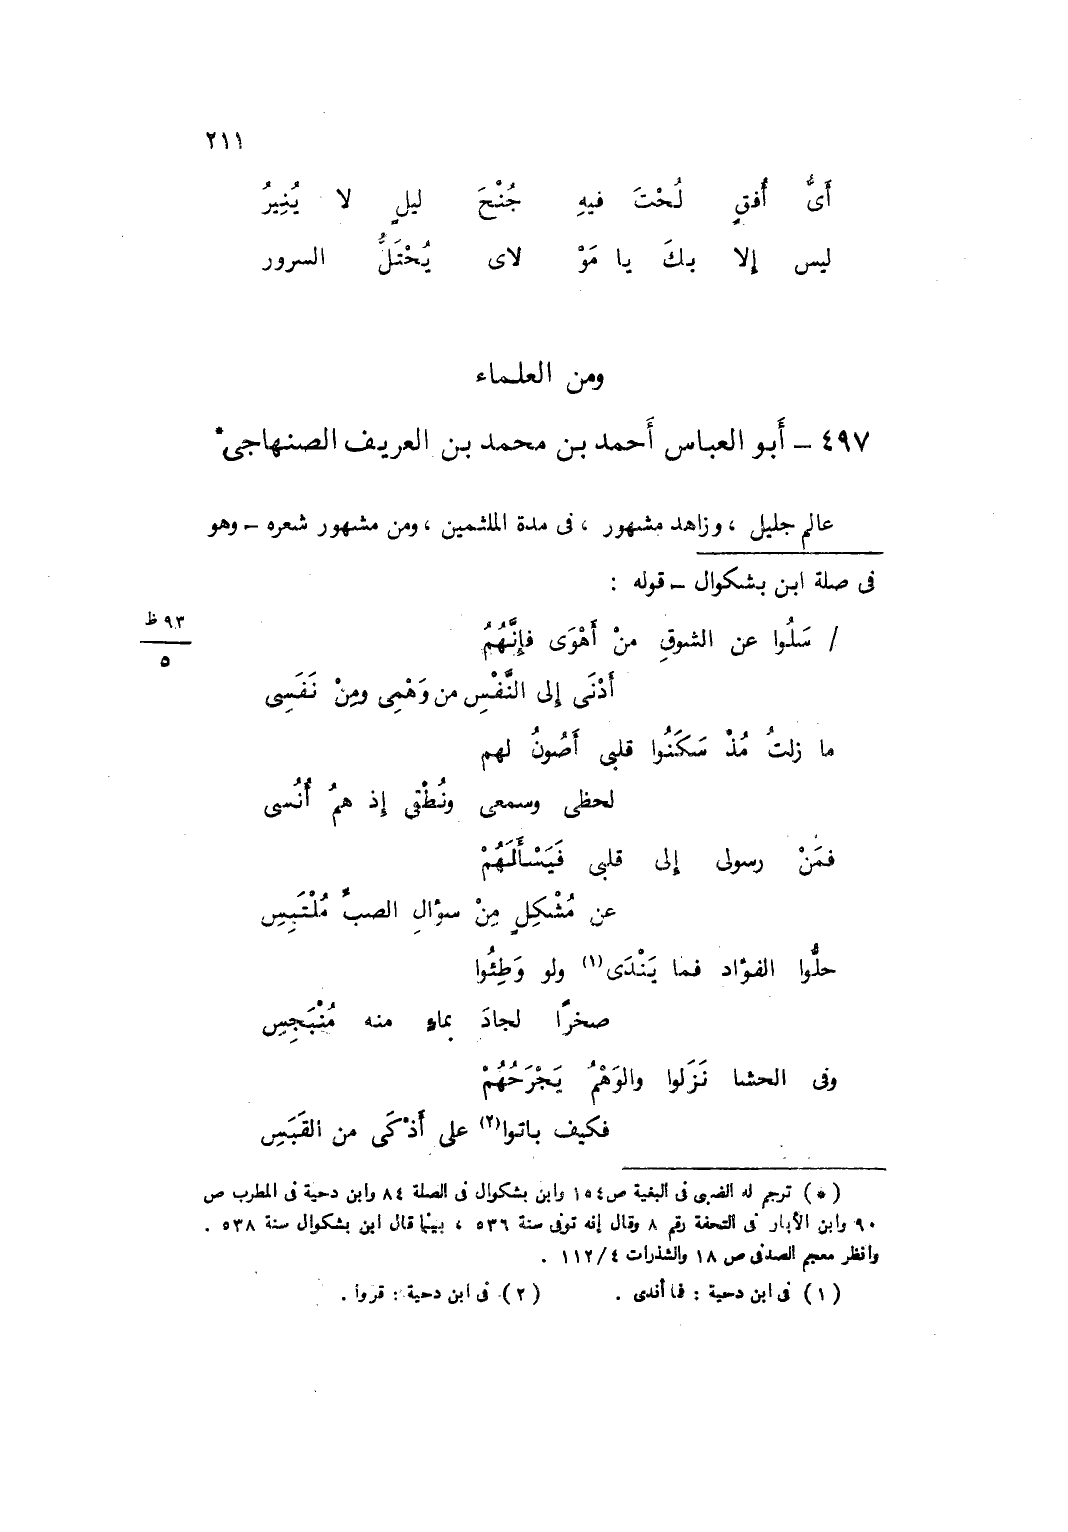 ٢١١
أَىُّ أُفقٍ لُحْتَ فيهِ جُنْحَ ليلٍ لا يُنِيرُ
ليس إلا بكَ يا مَوْ لاى يُحْتَلُّ السرور
ومن العلماء
٤٩٧ – أَبو العباس أَحمد بن محمد بن العريف الصنهاجى*
عالم جليل ، وزاهد مشهور ، فى مدة الملثمين ، ومن مشهور شعره – وهو
فى صلة ابن بشكوال – قوله :
٩٣ ظ
٥
/ سَلُوا عن الشوقِ منْ أَهْوَى فإِنَّهُمُ
أَدْنَى إلى النَّفْسِ من وَهْمِى ومِنْ نَفَسِى
ما زلتُ مُذْ سَكَنُوا قلبى أَصُونُ لهم
لحظى وسمعى ونُطْقِى إِذ همُ أُنُسى
فمَنْ رسولى إلى قلبى فَيَسْأَلَهُمْ
عن مُشْكِلٍ مِنْ سؤالِ الصبِّ مُلْتَبِسِ
حلُّوا الفؤاد فما يَنْدَى(١) ولو وَطِئُوا
صخرًا لجادَ بماءٍ منه مُنْبَجِسِ
وفى الحشا نَزَلوا والوَهْمُ يَجْرَحُهُمْ
فكيف باتوا(٢) على أَذْكَى من القَبَسِ
(*) ترجم له الضبى فى البغية ص١٥٤ وابن بشكوال فى الصلة ٨٤ وابن دحية فى المطرب ص
٩٠ وابن الأبار فى التحفة رقم ٨ وقال إنه توفى سنة ٥٣٦ ، بينما قال ابن بشكوال سنة ٥٣٨ .
وانظر معجم الصدفى ص ١٨ والشذرات ٤/١١٢ .
(١) فى ابن دحية : فما أندى . (٢) فى ابن دحية : قروا .